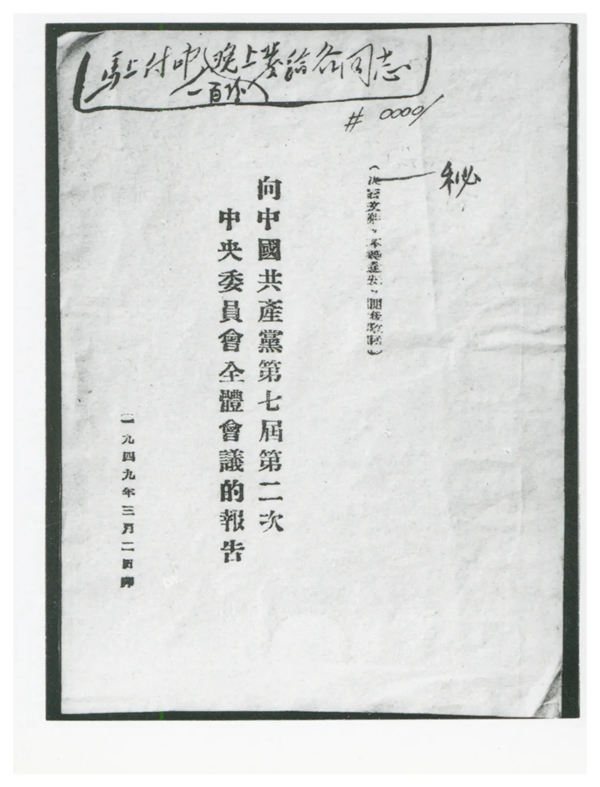 馬上付印 晚上發給各同志
一百份
# 0001
秘
不得遺失
向中國共產黨第七屆第二次
中央委員會全體會議的報告
一九四九年三月二日